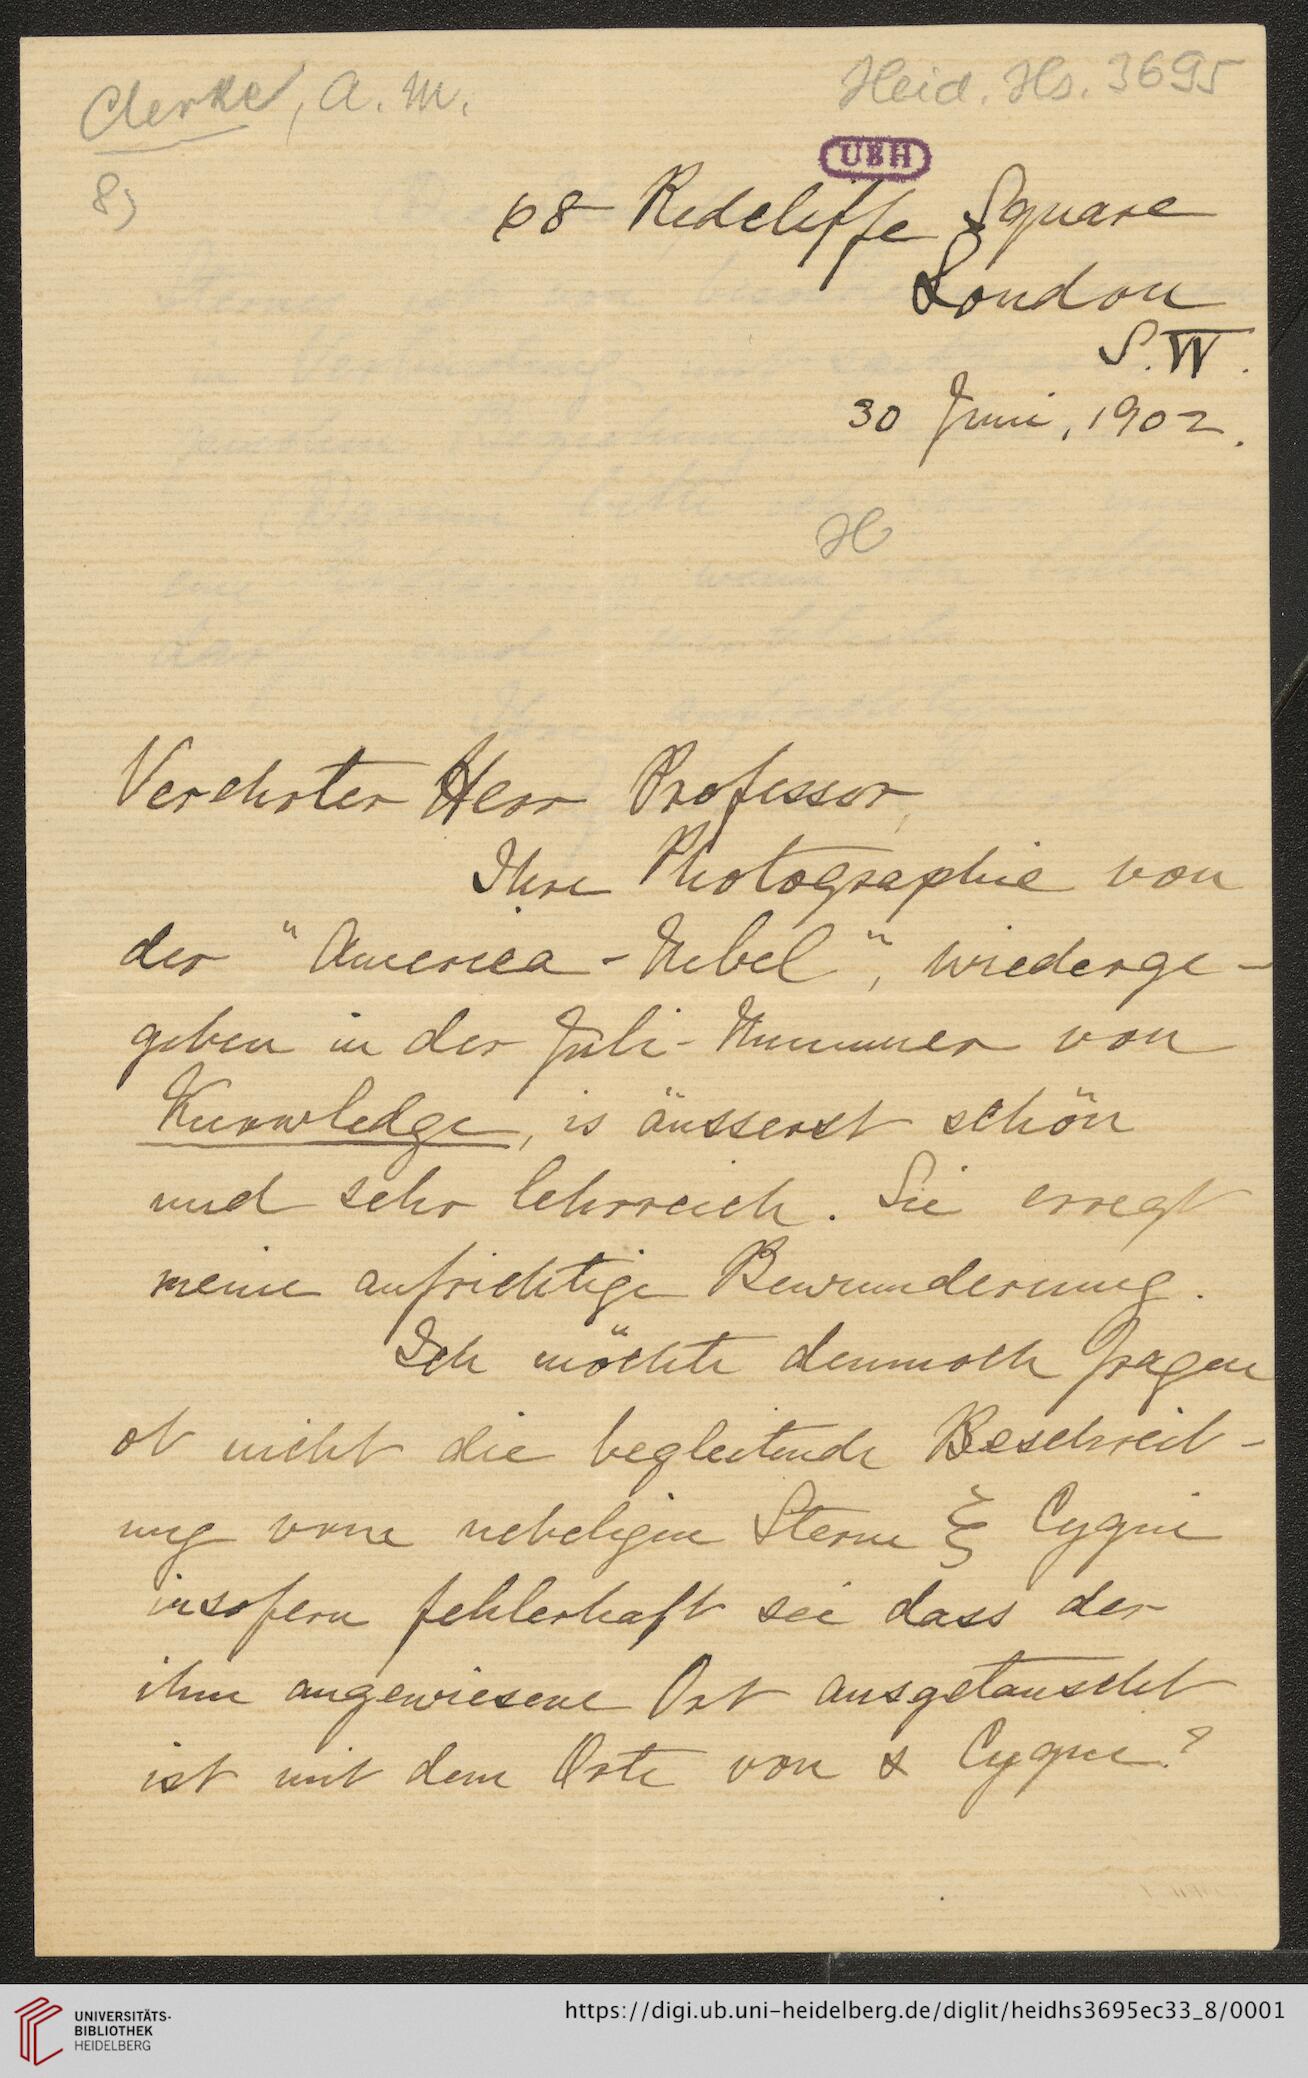 Clerke, A. M.
Heid. Hs. 3695
8)
UBH
68 Redcliffe Square
London
S.W.
30 Juni, 1902.
H
Verehrter Herr Professor,
Ihre Photographie von
der "America-Nebel", wiederge-
geben in der Juli-Nummer von
Knowledge, is äusserst schön
und sehr lehrreich. Sie erregt
meine aufrichtige Bewunderung.
Ich möchte dennoch fragen
ob nicht die begleitende Beschreib-
ung vone nebeligen Sterne ξ Cygni
insofern fehlerhaft sei dass der
ihm angewiesene Ort ausgetauscht
ist mit dem Orte von α Cygni?
UNIVERSITÄTS-
BIBLIOTHEK
HEIDELBERG
https://digi.ub.uni-heidelberg.de/diglit/heidhs3695ec33_8/0001